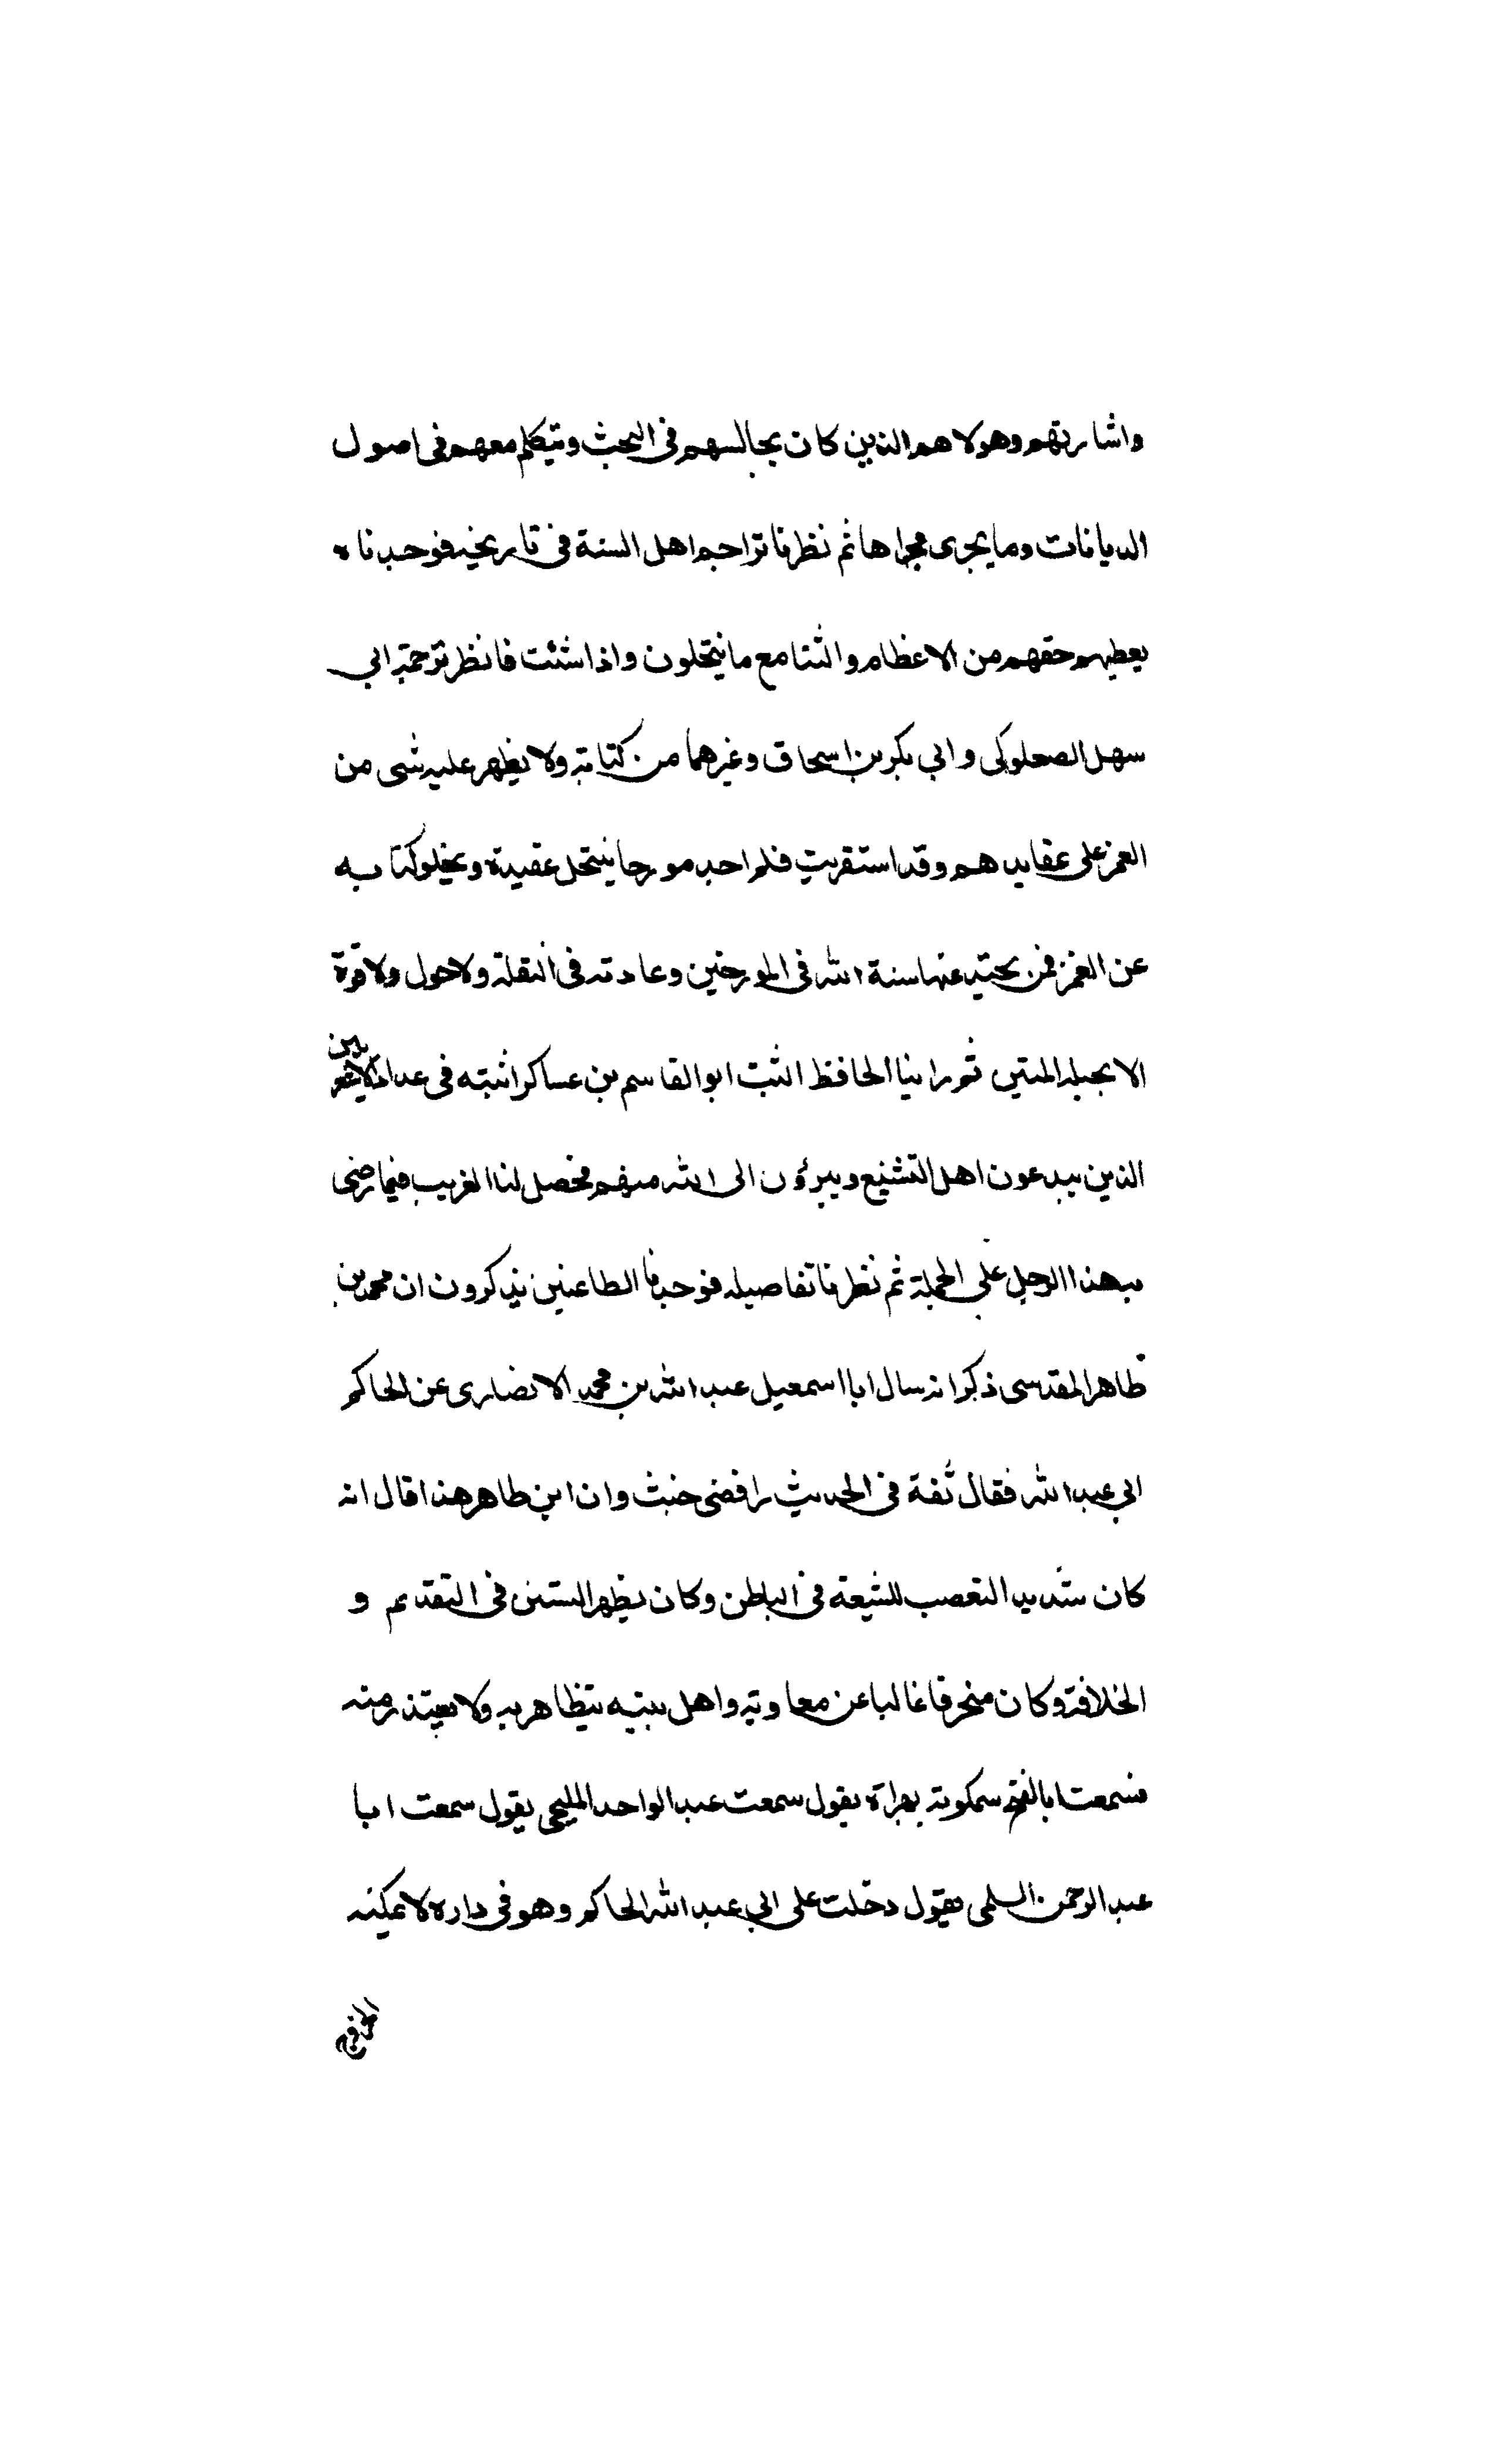 واشارتهم وهولا هم الذين كان يجالسهم في البحث ويتكلم معهم في اصول
الديانات وما يجرى مجراها ثم نظرنا تراجم اهل السنة في تاريخه فوجدناه
يعطيهم حقهم من الاعظام والثنا مع ما ينتحلون واذا شئت فانظر ترجمة ابي
سهل الصعلوكى وابي بكر بن اسحاق وغيرهما من كتابه ولا يظهر عليه شى من
الغمز على عقايدهم وقد استقريت فلم اجد مورخا ينتحل عقيدة ويخلو كتابه
عن الغمز فمن يحتيد عنها سنة الله في المورخين وعادته في النقلة ولا حول ولا قوة
الا بحبله المتين ثم راينا الحافظ الثبت ابو القاسم بن عساكر اثبته في عداد الاشعريين
الذين يبدعون اهل التشنيع ويبرؤن الى الله منهم فحصل لنا الغريب فيما رضى
بهذا الرجل على الجملة ثم نظرنا تفاصيله فوجدنا الطاعنين يذكرون ان محمد بن
طاهر المقدسى ذكر انه سال ابا اسمعيل عبد الله بن محمد الانصارى عن الحاكم
ابي عبد الله فقال ثقة في الحديث رافضى خبيث وان ابن طاهر هذا قال انه
كان شديد التعصب للشيعة في الباطن وكان يظهر التسنن في التقديم و
الخلافة وكان منحرفا غاليا عن معاوية واهل بيته يتظاهر به ولا يعتذر منه
فسمعت ابا الفتح سمكويه بهراة يقول سمعت عبد الواحد المليحي يقول سمعت ابا
عبد الرحمن السلمى يقول دخلت على ابي عبد الله الحاكم وهو في داره لا يمكنه